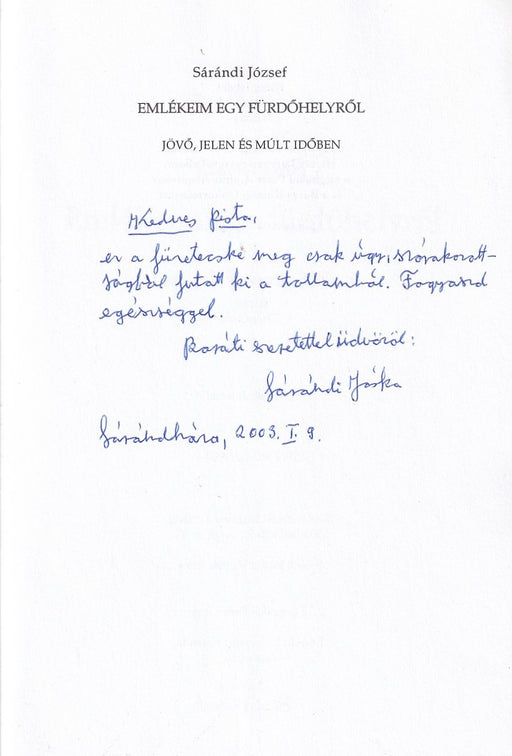 Sárándi József
EMLÉKEIM EGY FÜRDŐHELYRŐL
JÖVŐ, JELEN ÉS MÚLT IDŐBEN
Kedves Pista,
ez a füzetecske meg csak úgy, szórakozott-
ságból futott ki a tollamból. Fogyaszd
egészséggel.
Baráti szeretettel üdvözöl:
Sárándi Jóska
2003. I. 9.